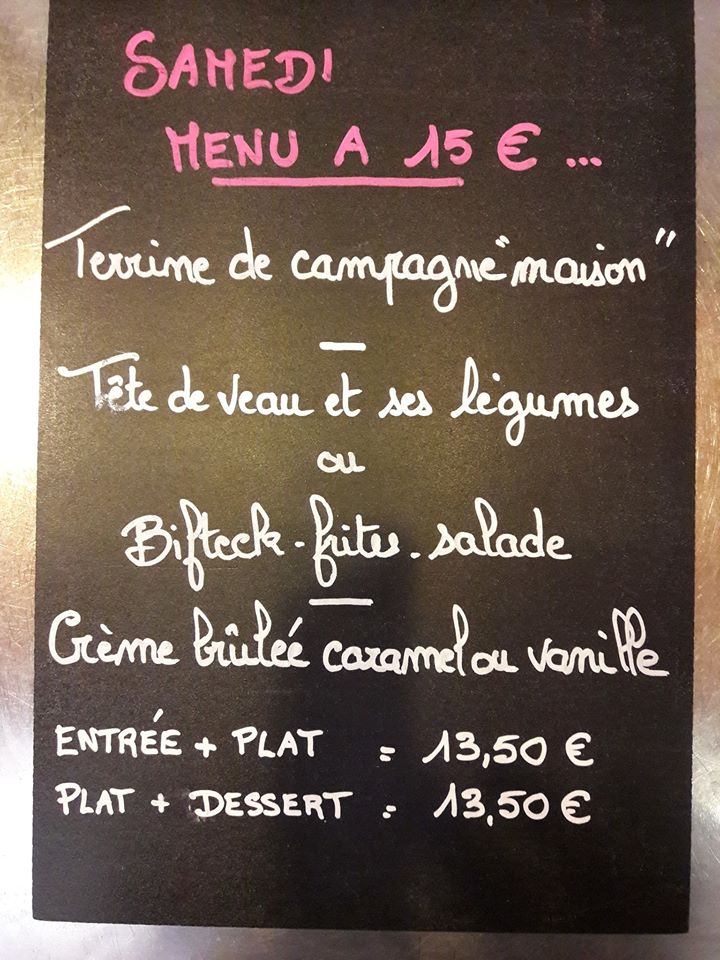 SAMEDI
MENU A 15 € ...
Terrine de campagne "maison"
Tête de veau et ses légumes
ou
Bifteck - frites - salade
Crème brûlée caramel ou vanille
ENTRÉE + PLAT = 13,50 €
PLAT + DESSERT = 13,50 €